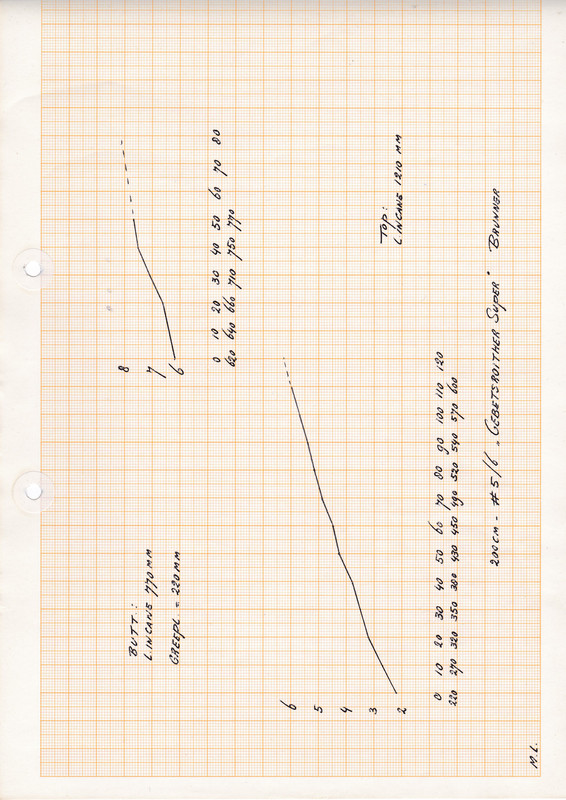 BUTT.:
L INCANE 770 MM
GREEPL. = 220 MM
8
7
6
0 10 20 30 40 50 60 70 80
620 640 660 710 750 770
6
5
4
3
2
TOP:
L INCANE 1210 MM
0 10 20 30 40 50 60 70 80 90 100 110 120
220 270 320 350 380 430 450 490 520 540 570 600
200 CM - #5/6 „GEBETSROITHER SUPER" BRUNNER
M.L.